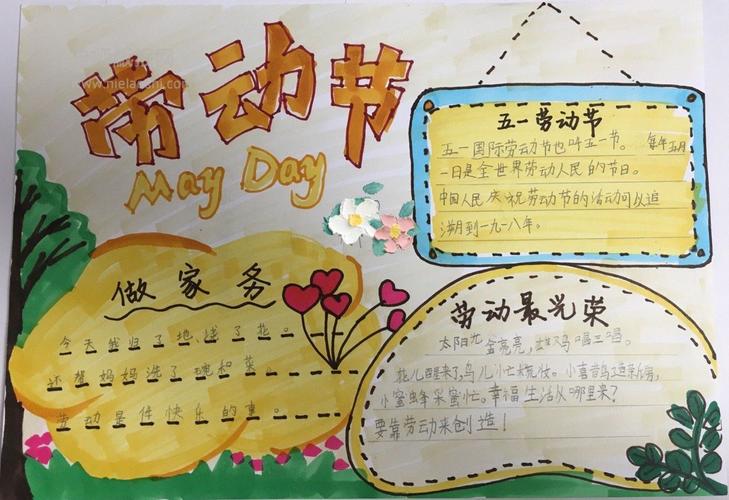 劳动节
May Day
五一劳动节
五一国际劳动节也叫五一节。 每年五月
一日是全世界劳动人民的节日。
中国人民庆祝劳动节的活动可以追
溯到一九一八年。
做家务
今天我扫了地、浇了花。
还帮妈妈洗了碗和菜。
劳动是件快乐的事。
劳动最光荣
太阳光金亮亮,雄鸡唱三唱。
花儿醒来了,鸟儿忙梳妆。小喜鹊造新房,
小蜜蜂采蜜忙。幸福生活从哪里来?
要靠劳动来创造!